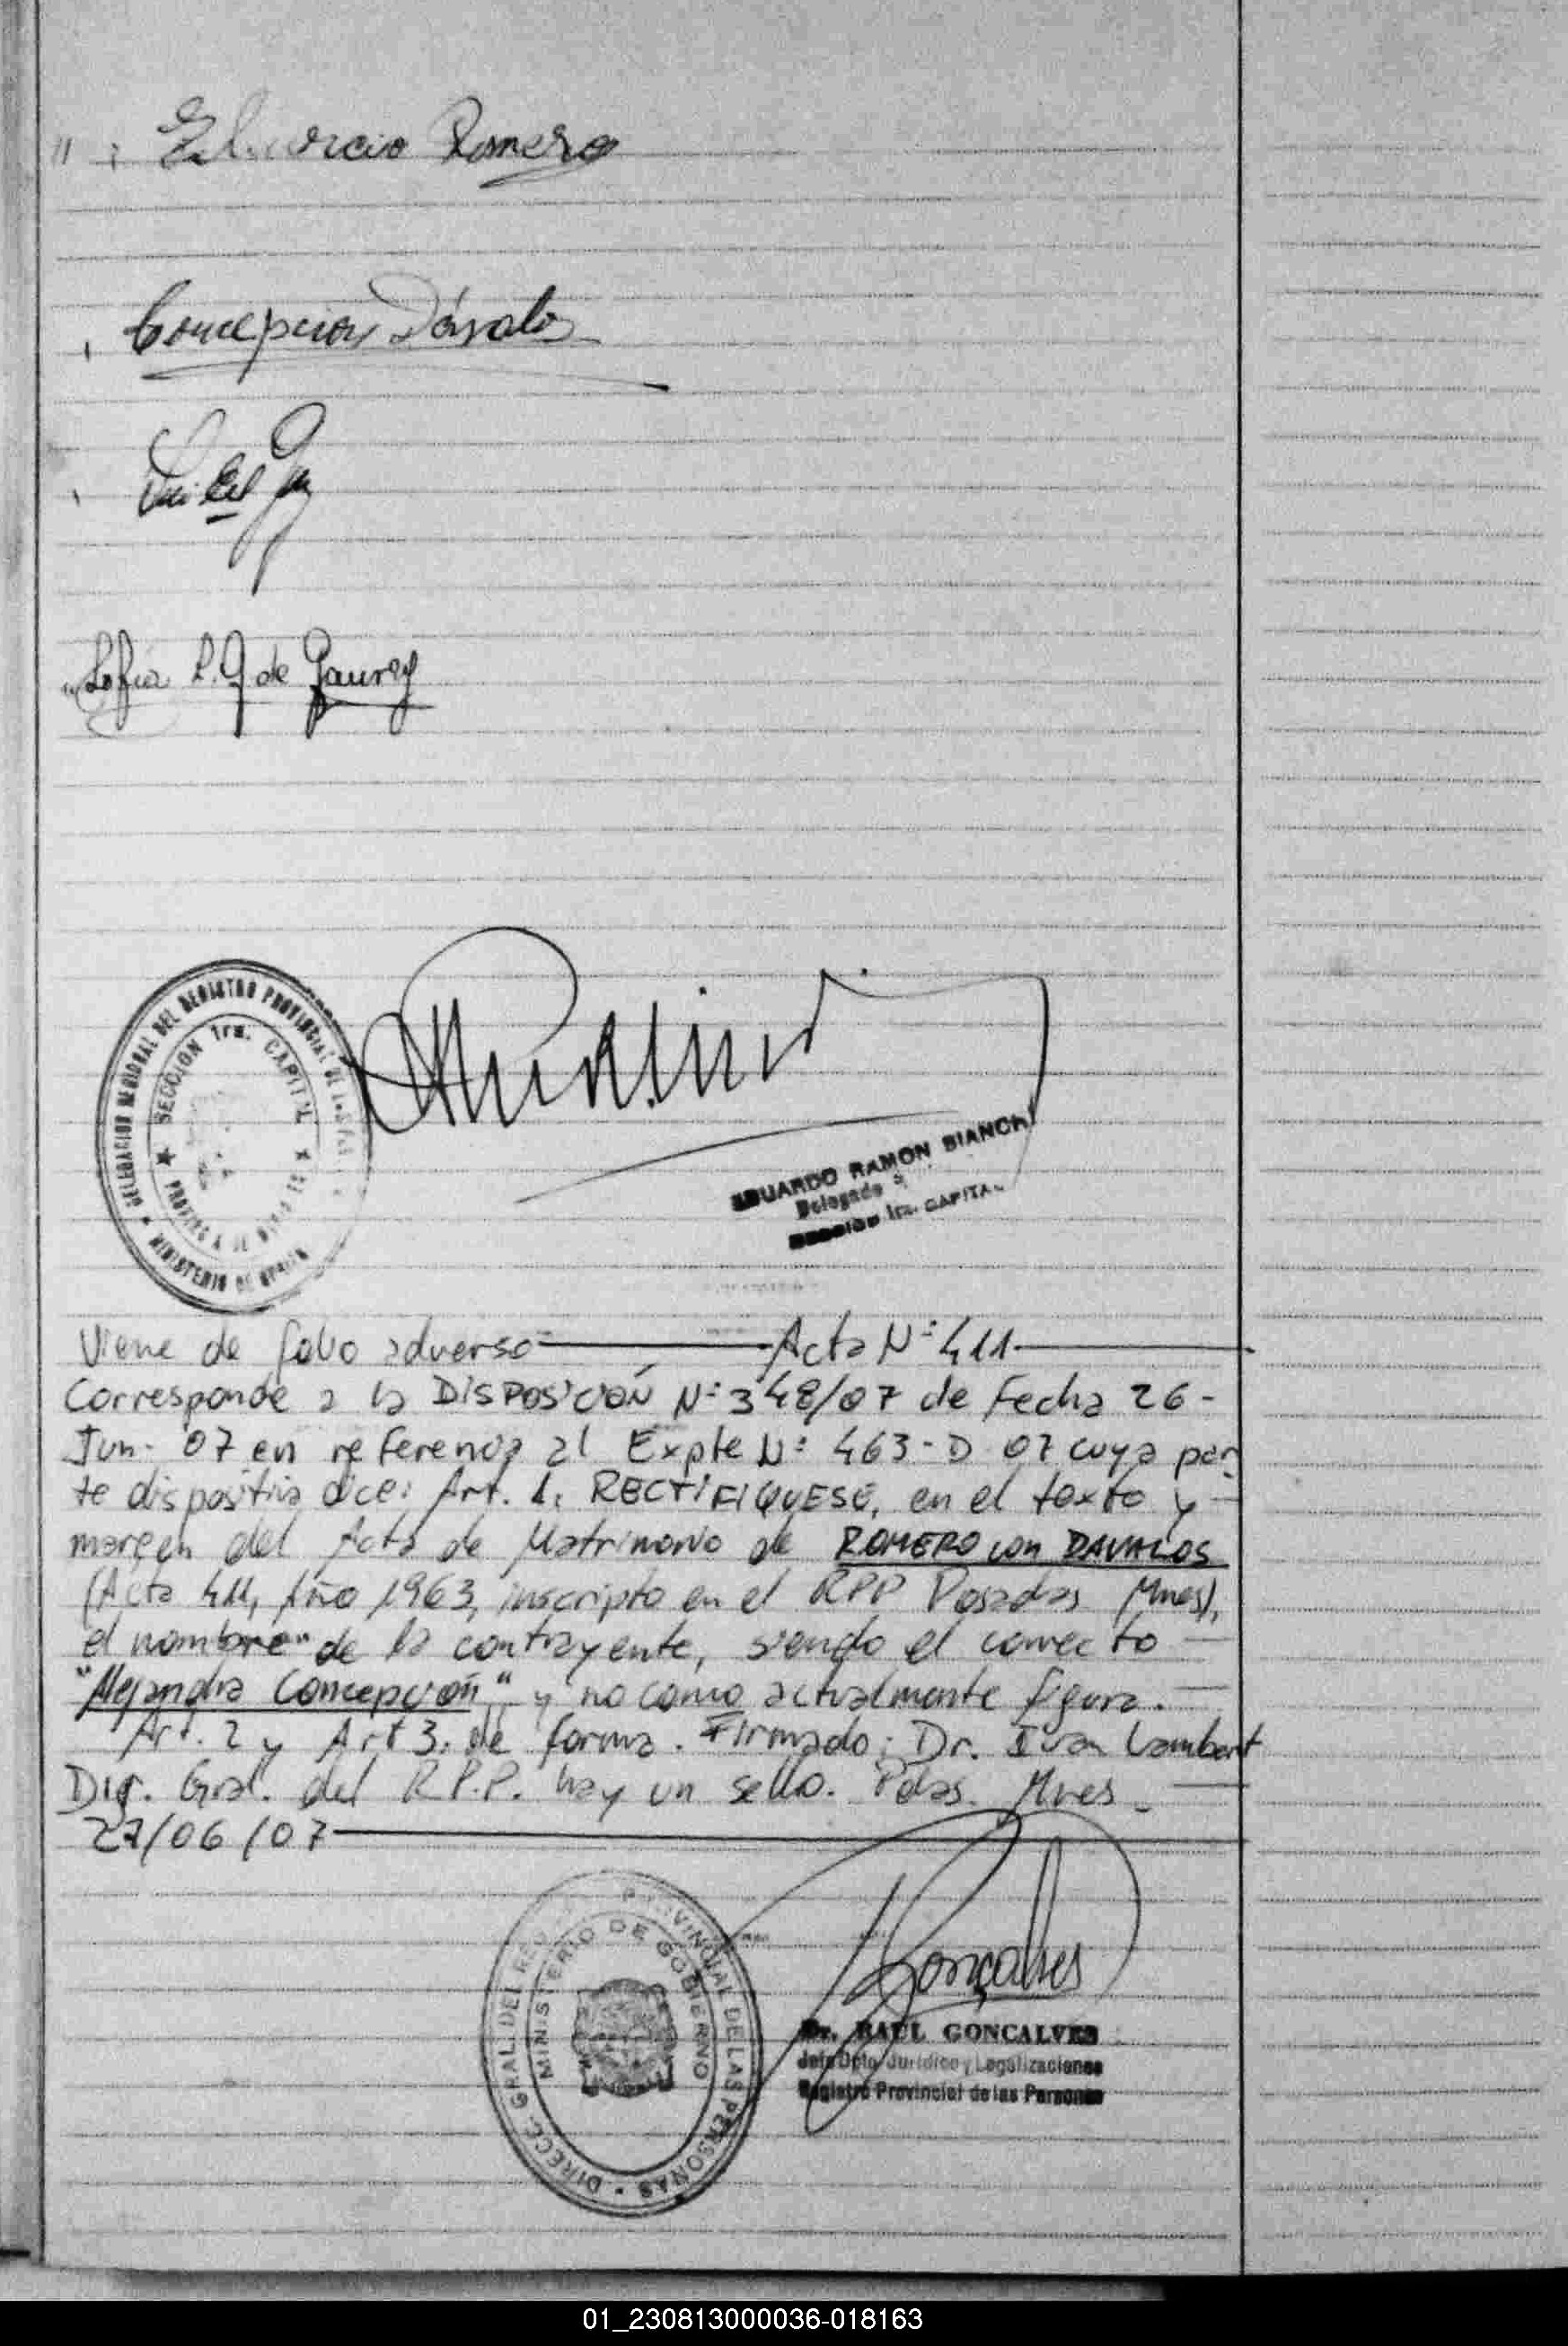 " : Romero
Concepcion Dávalos
Sofia L. G de Gaurey
DELEGACION REGIONAL DEL REGISTRO PROVINCIAL DE LAS
SECCION 1ra. CAPITAL
MINISTERIO DE
EDUARDO RAMON BIANCHI
Delegado
SECCION 1ra. CAPITAL
Viene de folio adverso — Acta N: 411 —
Corresponde a la DISPOSICIÓN N: 348/07 de Fecha 26 -
Jun - 07 en referencia al Expte N: 463 - D 07 cuya par
te dispositiva dice: Art. 1. RECTIFIQUESE, en el texto y —
margen del Acta de Matrimonio de ROMERO con DAVALOS
(Acta 411, Año 1963, inscripto en el RPP Posadas Mnes),
el nombre de la contrayente, siendo el correcto —
"Alejandra Concepción" y no como actualmente figura. —
Art. 2 y Art 3. de forma. Firmado: Dr. Ivan Lambert
Dir. Gral. del R.P.P. hay un sello. Pdas. Mnes —
27/06/07 —
DIRECC. GRAL. DEL REG PROVINCIAL DE LAS PERSONAS
MINISTERIO DE GOBIERNO
Gonçalves
Dr. RAUL GONCALVES
Jefe Dpto. Jurídico y Legalizaciones
Registro Provincial de las Personas
01_230813000036-018163